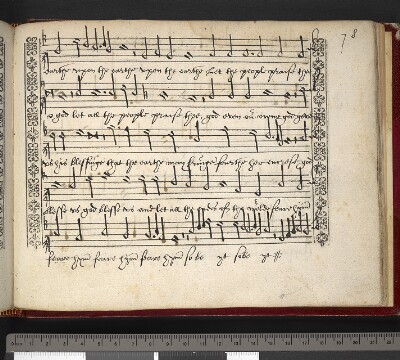 78
earthe upon the earthe upon the earthe Let the people praise the
o god let all the people praise thee, god even our owne god geve
us his blessinge that the earthe may bringe furthe her encrese, god
blesse us god blesse us and let all the endes of the world feare hym
feare hym feare hym feare hym so be yt so be yt